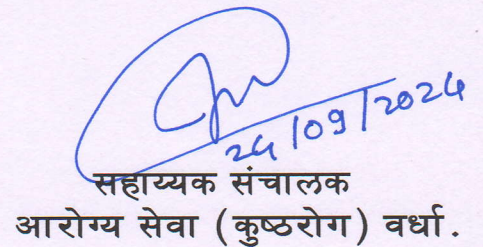 24/09/2024
सहाय्यक संचालक
आरोग्य सेवा (कुष्ठरोग) वर्धा.